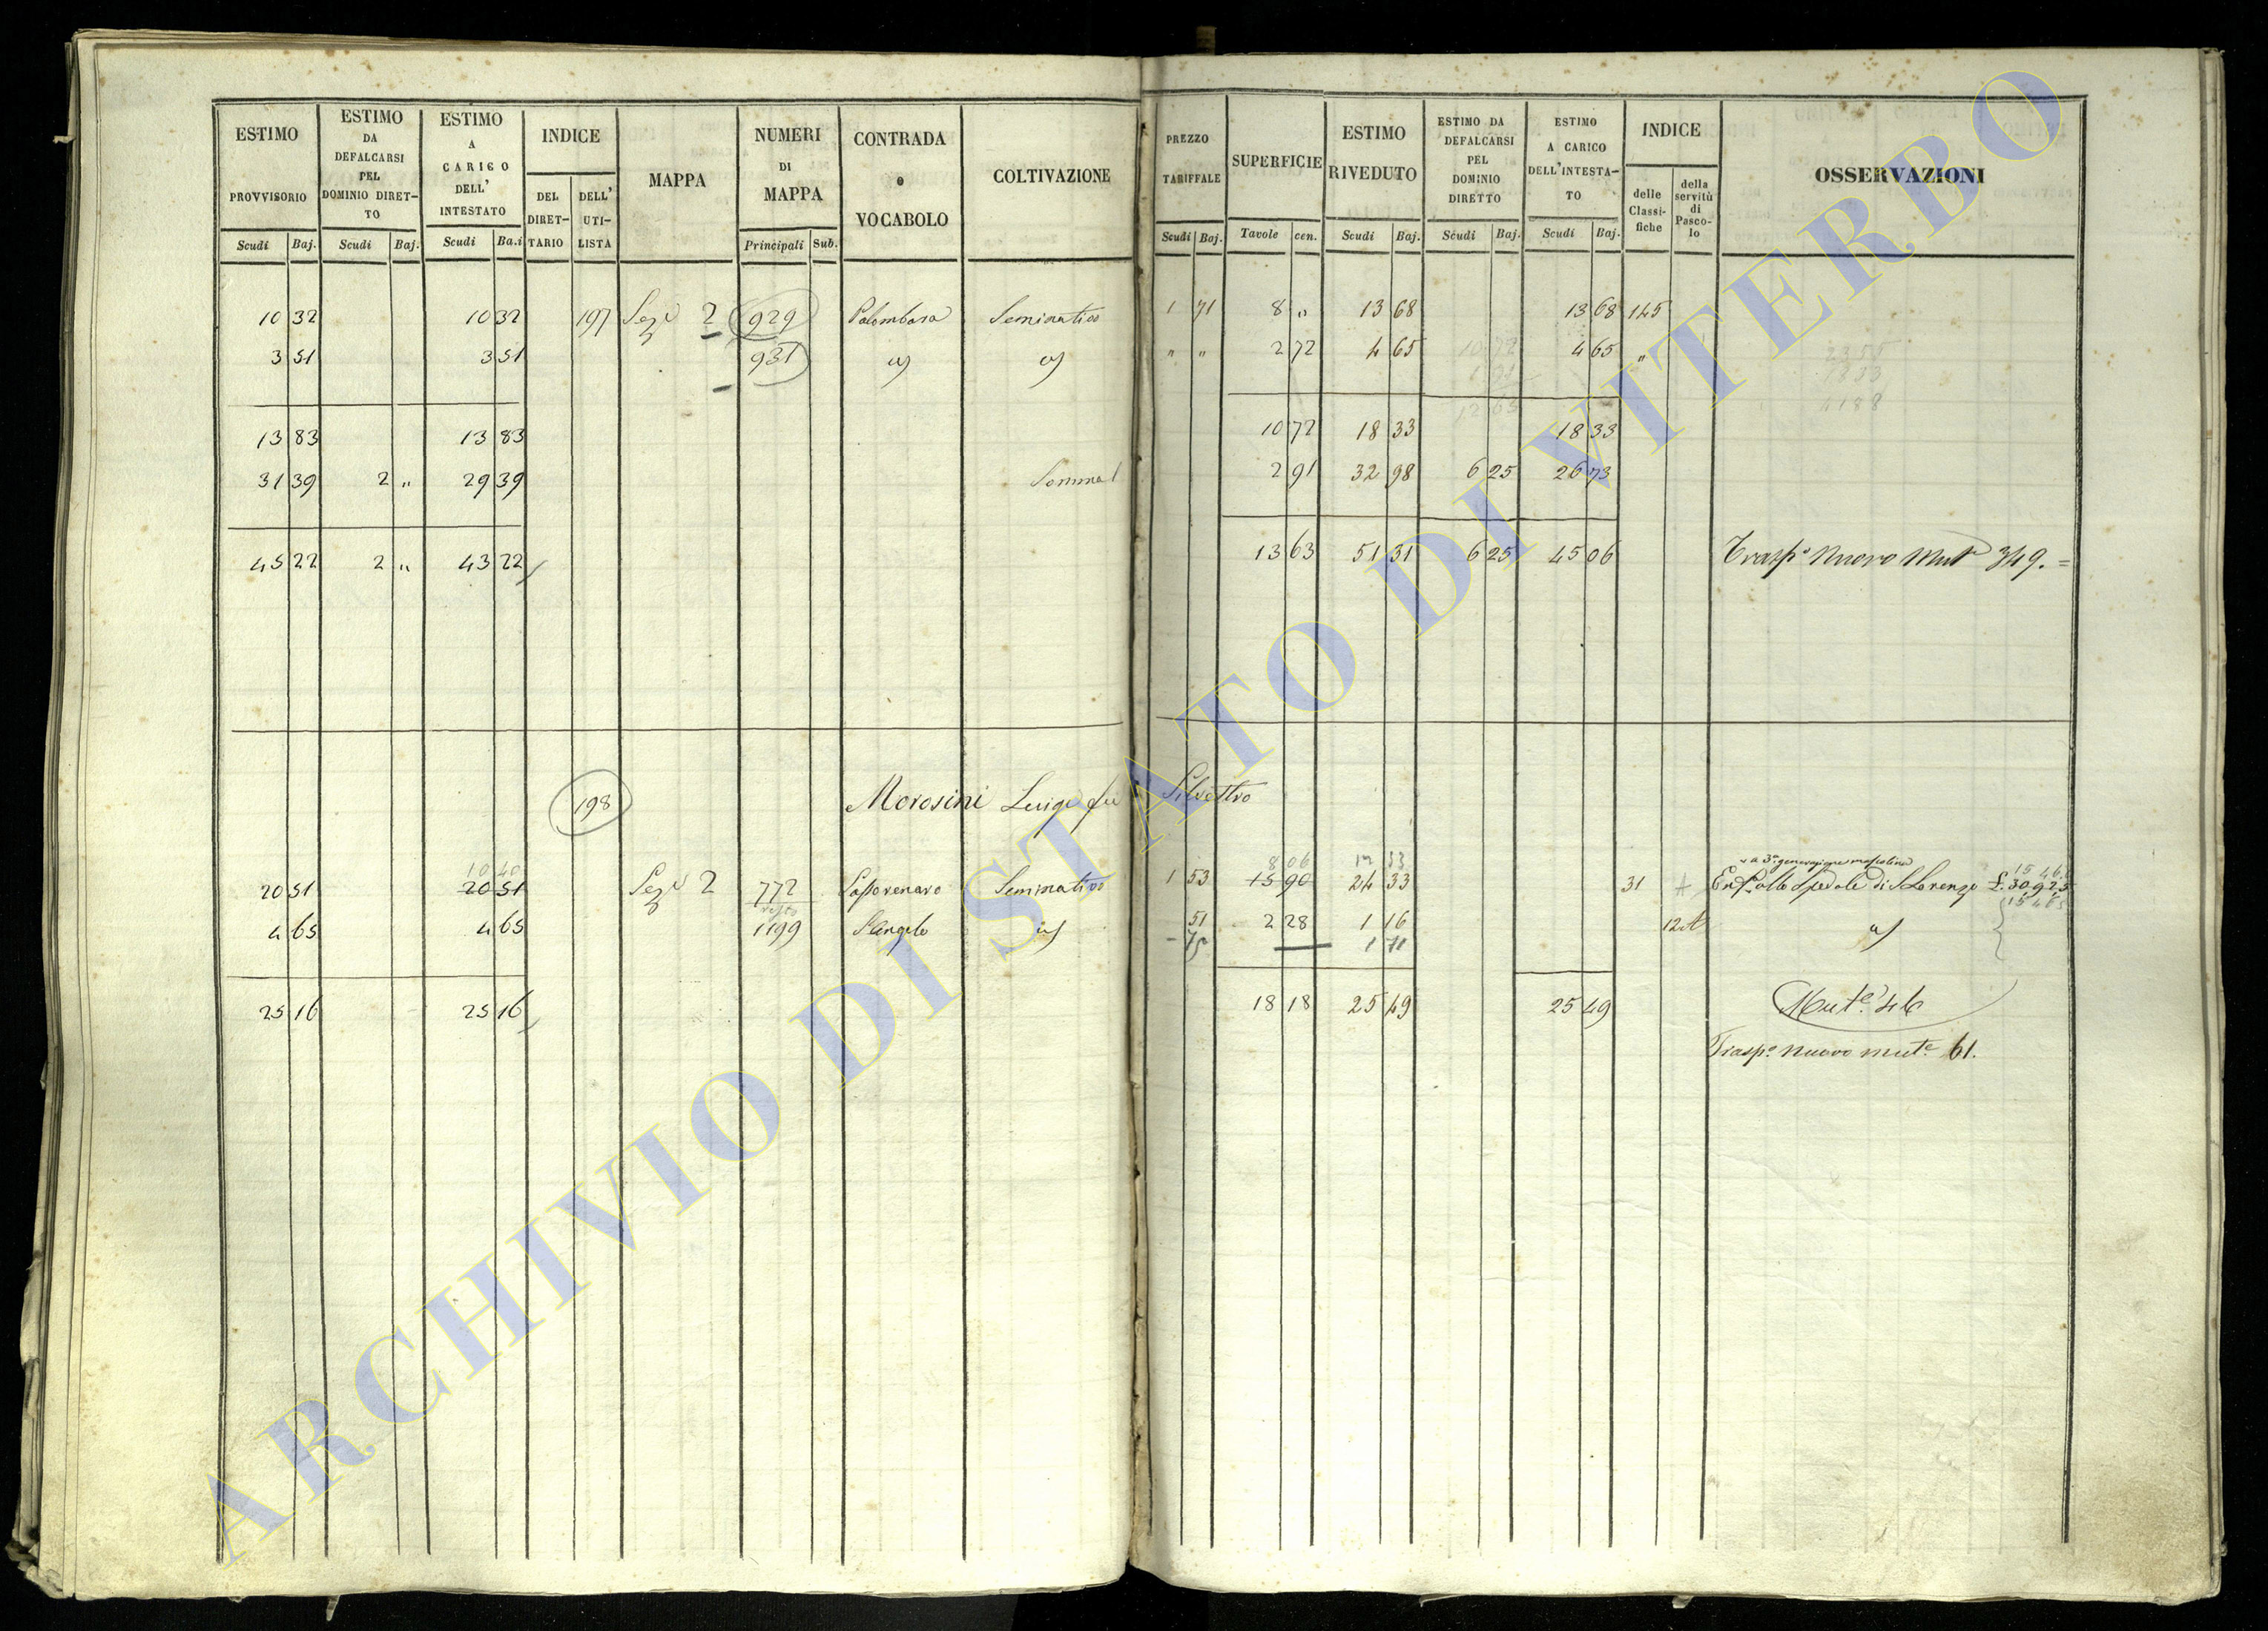 ESTIMO PROVVISORIO Scudi Baj.
ESTIMO DA DEFALCARSI PEL DOMINIO DIRET-TO Scudi Baj.
ESTIMO A CARICO DELL' INTESTATO Scudi Ba.i
INDICE DEL DIRET-TARIO DELL' UTI-LISTA
MAPPA
NUMERI DI MAPPA Principali Sub.
CONTRADA e VOCABOLO
COLTIVAZIONE
PREZZO TARIFFALE Scudi Baj.
SUPERFICIE Tavole cen.
ESTIMO RIVEDUTO Scudi Baj.
ESTIMO DA DEFALCARSI PEL DOMINIO DIRETTO Scudi Baj.
ESTIMO A CARICO DELL'INTESTA-TO Scudi Baj.
INDICE delle Classi-fiche della servitù di Pasco-lo
OSSERVAZIONI
10 32 10 32 197 Sez.e 2 929 Palombara Seminativo 1 71 8 " 13 68 13 68 145
3 51 3 51 931 " " 2 72 4 65 4 65 "
13 83 13 83 10 72 18 33 18 33
31 39 2 " 29 39 Somma 2 91 32 98 6 25 26 73
45 22 2 " 43 22 13 63 51 31 6 25 45 06 Trasp.o Nuovo Mut.e 349. =
198 Morosini Luigi fu Silvestro
10 40 8 06 12 33
20 51 20 51 Sez.e 2 772 Seminativo 1 53 15 90 24 33 31 A
a 3.a generazione mascolina
allo Spedale di S. Lorenzo £. 30,925
resto
4 65 4 65 1199 S. Angelo 51 2 28 1 16 12 A
1 71
25 16 25 16 18 18 25 49 25 49 Mut.e 46
Trasp.o nuovo mut.e 61.
ARCHIVIO DI STATO DI VITERBO